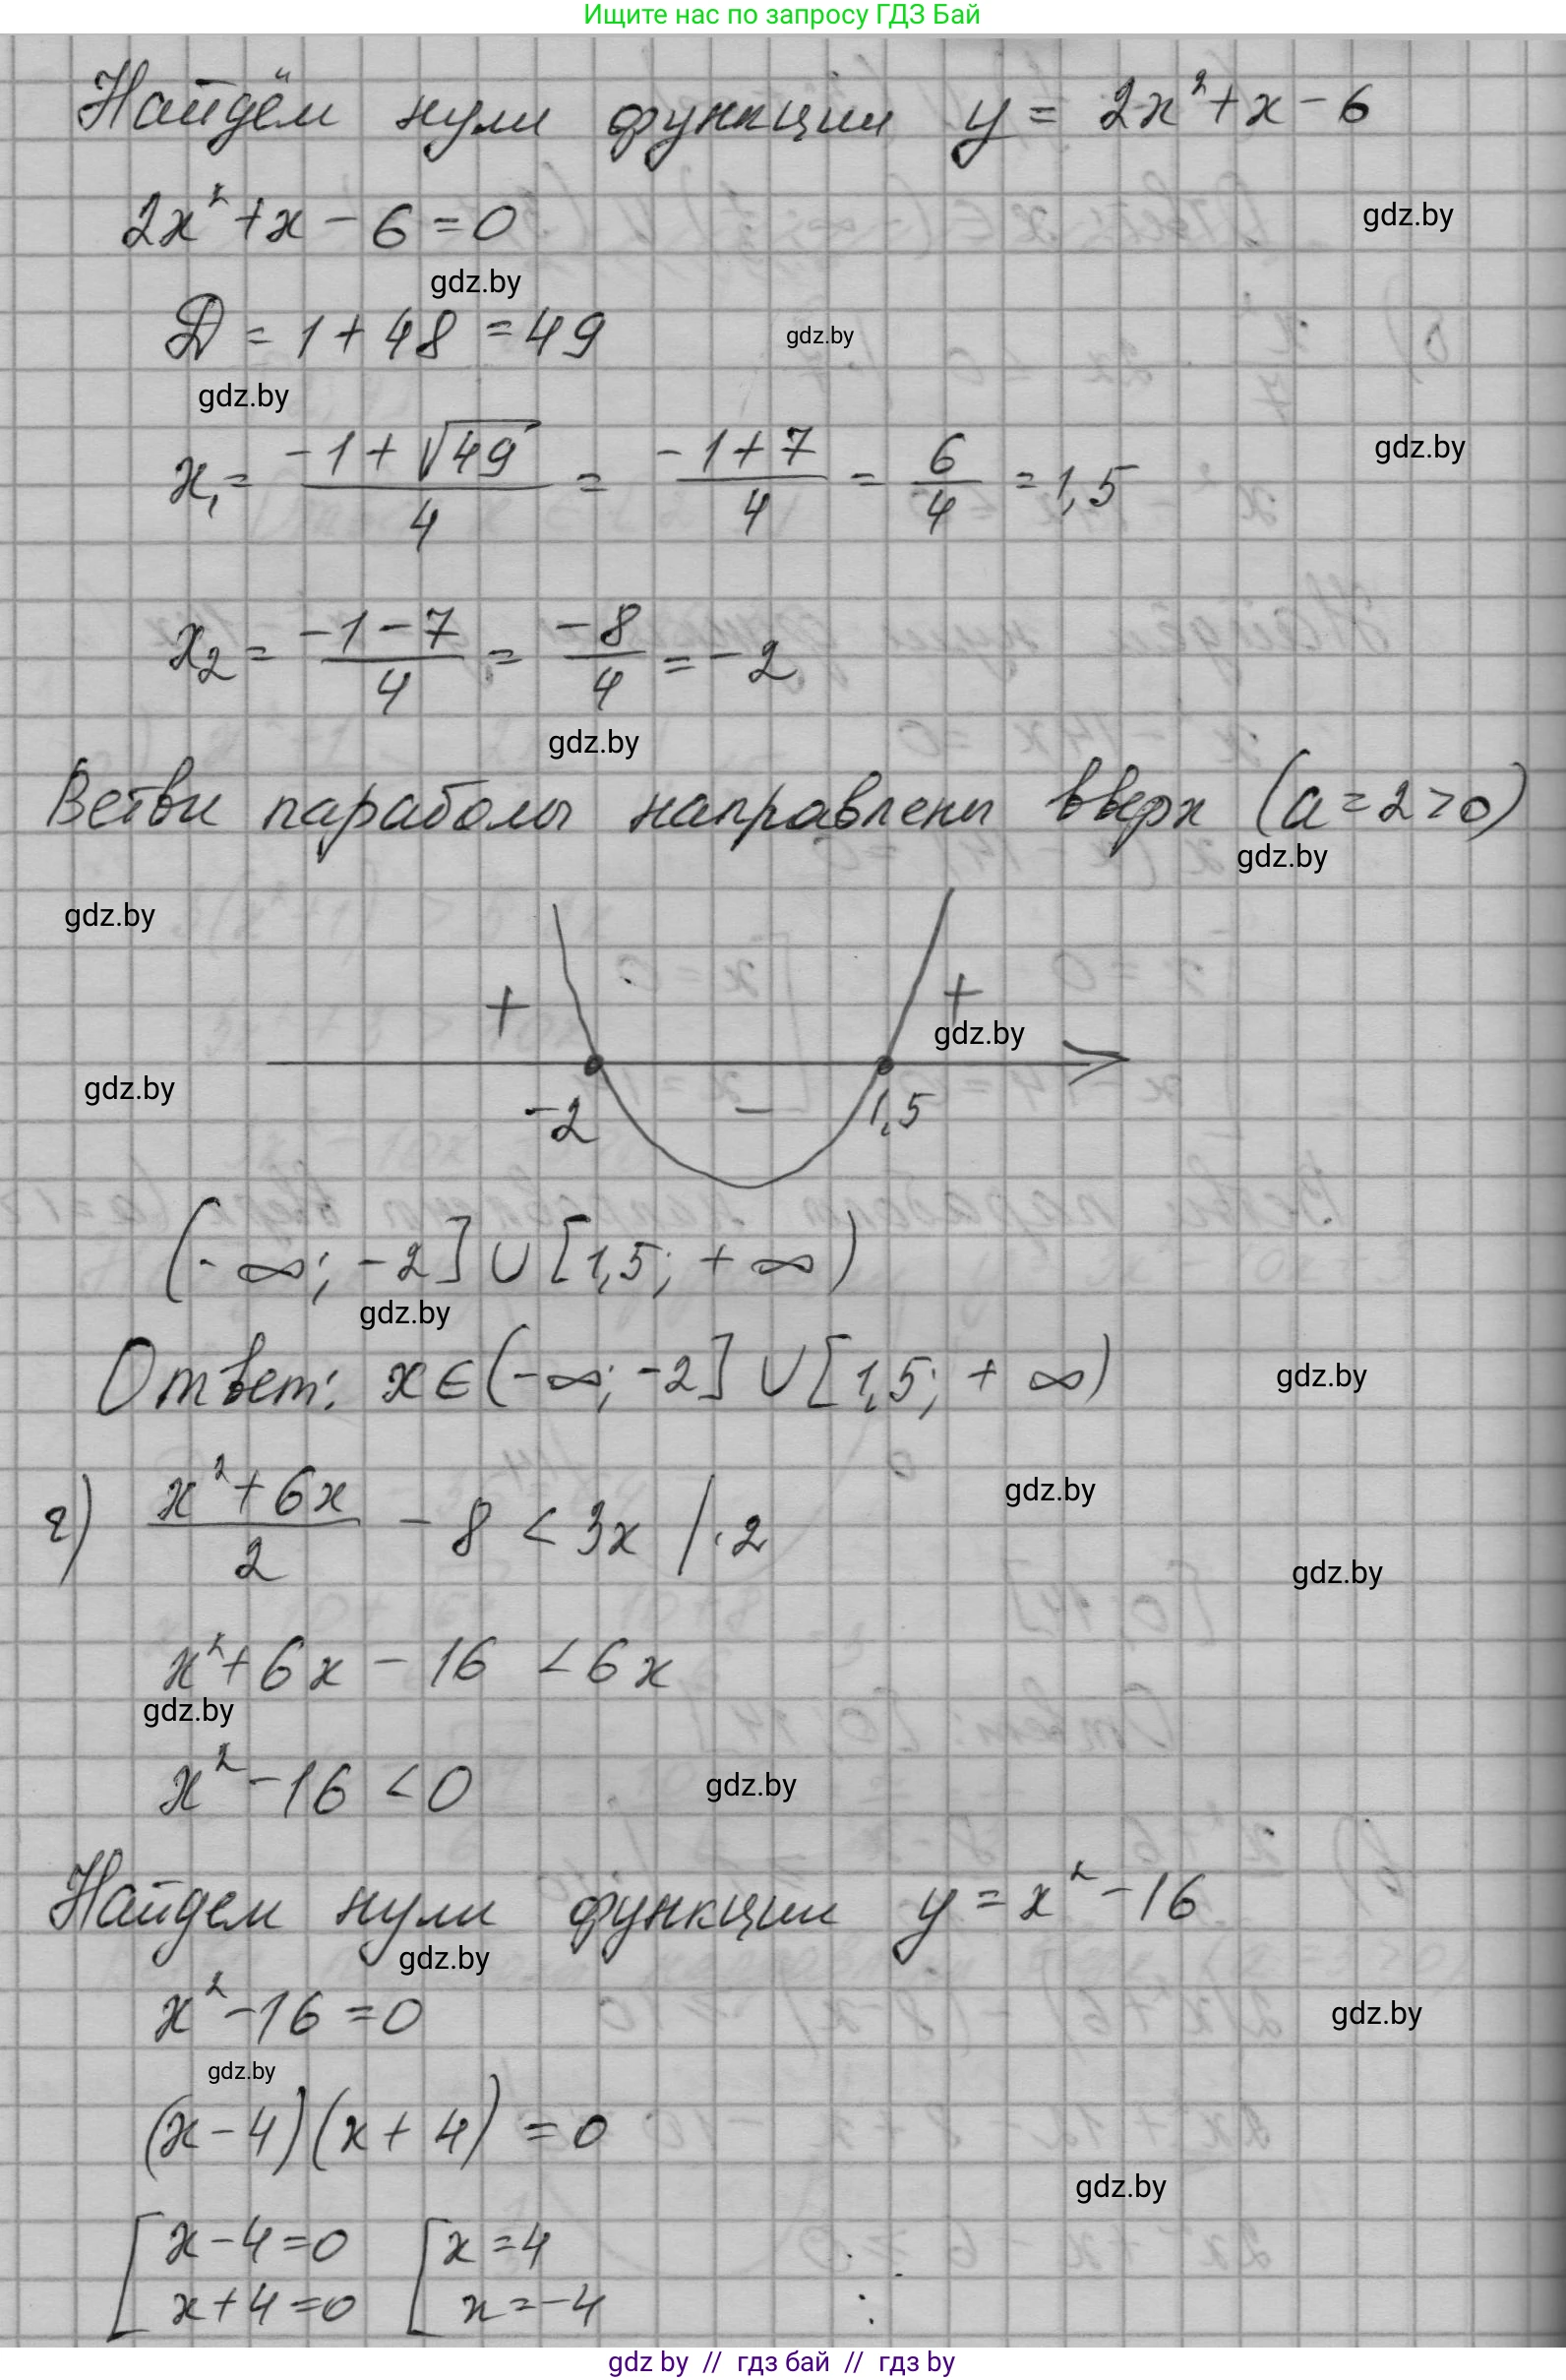 Ищите нас по запросу ГДЗ Бай
Найдём нули функции y = 2x² + x - 6
2x² + x - 6 = 0
gdz.by
gdz.by
D = 1 + 48 = 49
gdz.by
gdz.by
x₁ = (-1 + √49)/4 = (-1 + 7)/4 = 6/4 = 1,5
gdz.by
x₂ = (-1 - 7)/4 = -8/4 = -2
gdz.by
Ветви параболы направлены вверх (a = 2 > 0)
gdz.by
gdz.by
+ +
gdz.by
gdz.by
-2 - 1,5
(-∞; -2] ∪ [1,5; +∞)
gdz.by
Ответ: x ∈ (-∞; -2] ∪ [1,5; +∞)
gdz.by
gdz.by
г) (x² + 6x)/2 - 8 < 3x | · 2
gdz.by
x² + 6x - 16 < 6x
gdz.by
x² - 16 < 0
gdz.by
Найдем нули функции y = x² - 16
gdz.by
x² - 16 = 0
gdz.by
gdz.by
(x - 4)(x + 4) = 0
gdz.by
[ x - 4 = 0 [ x = 4
x + 4 = 0 x = -4
gdz by // гдз бай // gdz by